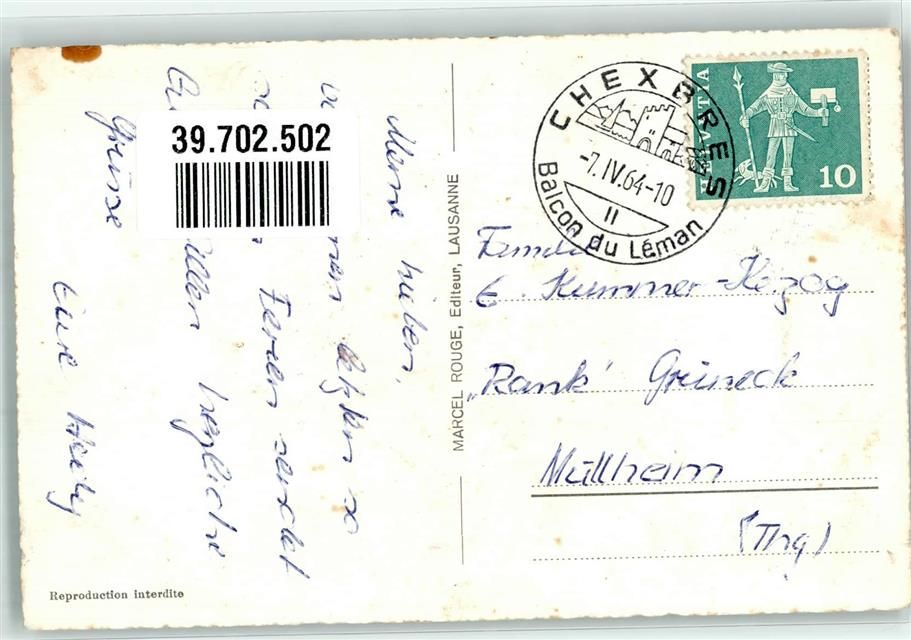 Meine Lieben,
meinen letzten so
Ferien sendet
allen herzliche
Grüsse
Eure Heidy
39.702.502
MARCEL ROUGE, Editeur, LAUSANNE
Reproduction interdite
CHEXBRES
-7.IV.64-10
II
Balcon du Léman
HELVETIA
10
Familie
E. Kummer-Herzog
„Rank" Grüneck
Müllheim
(Thg)